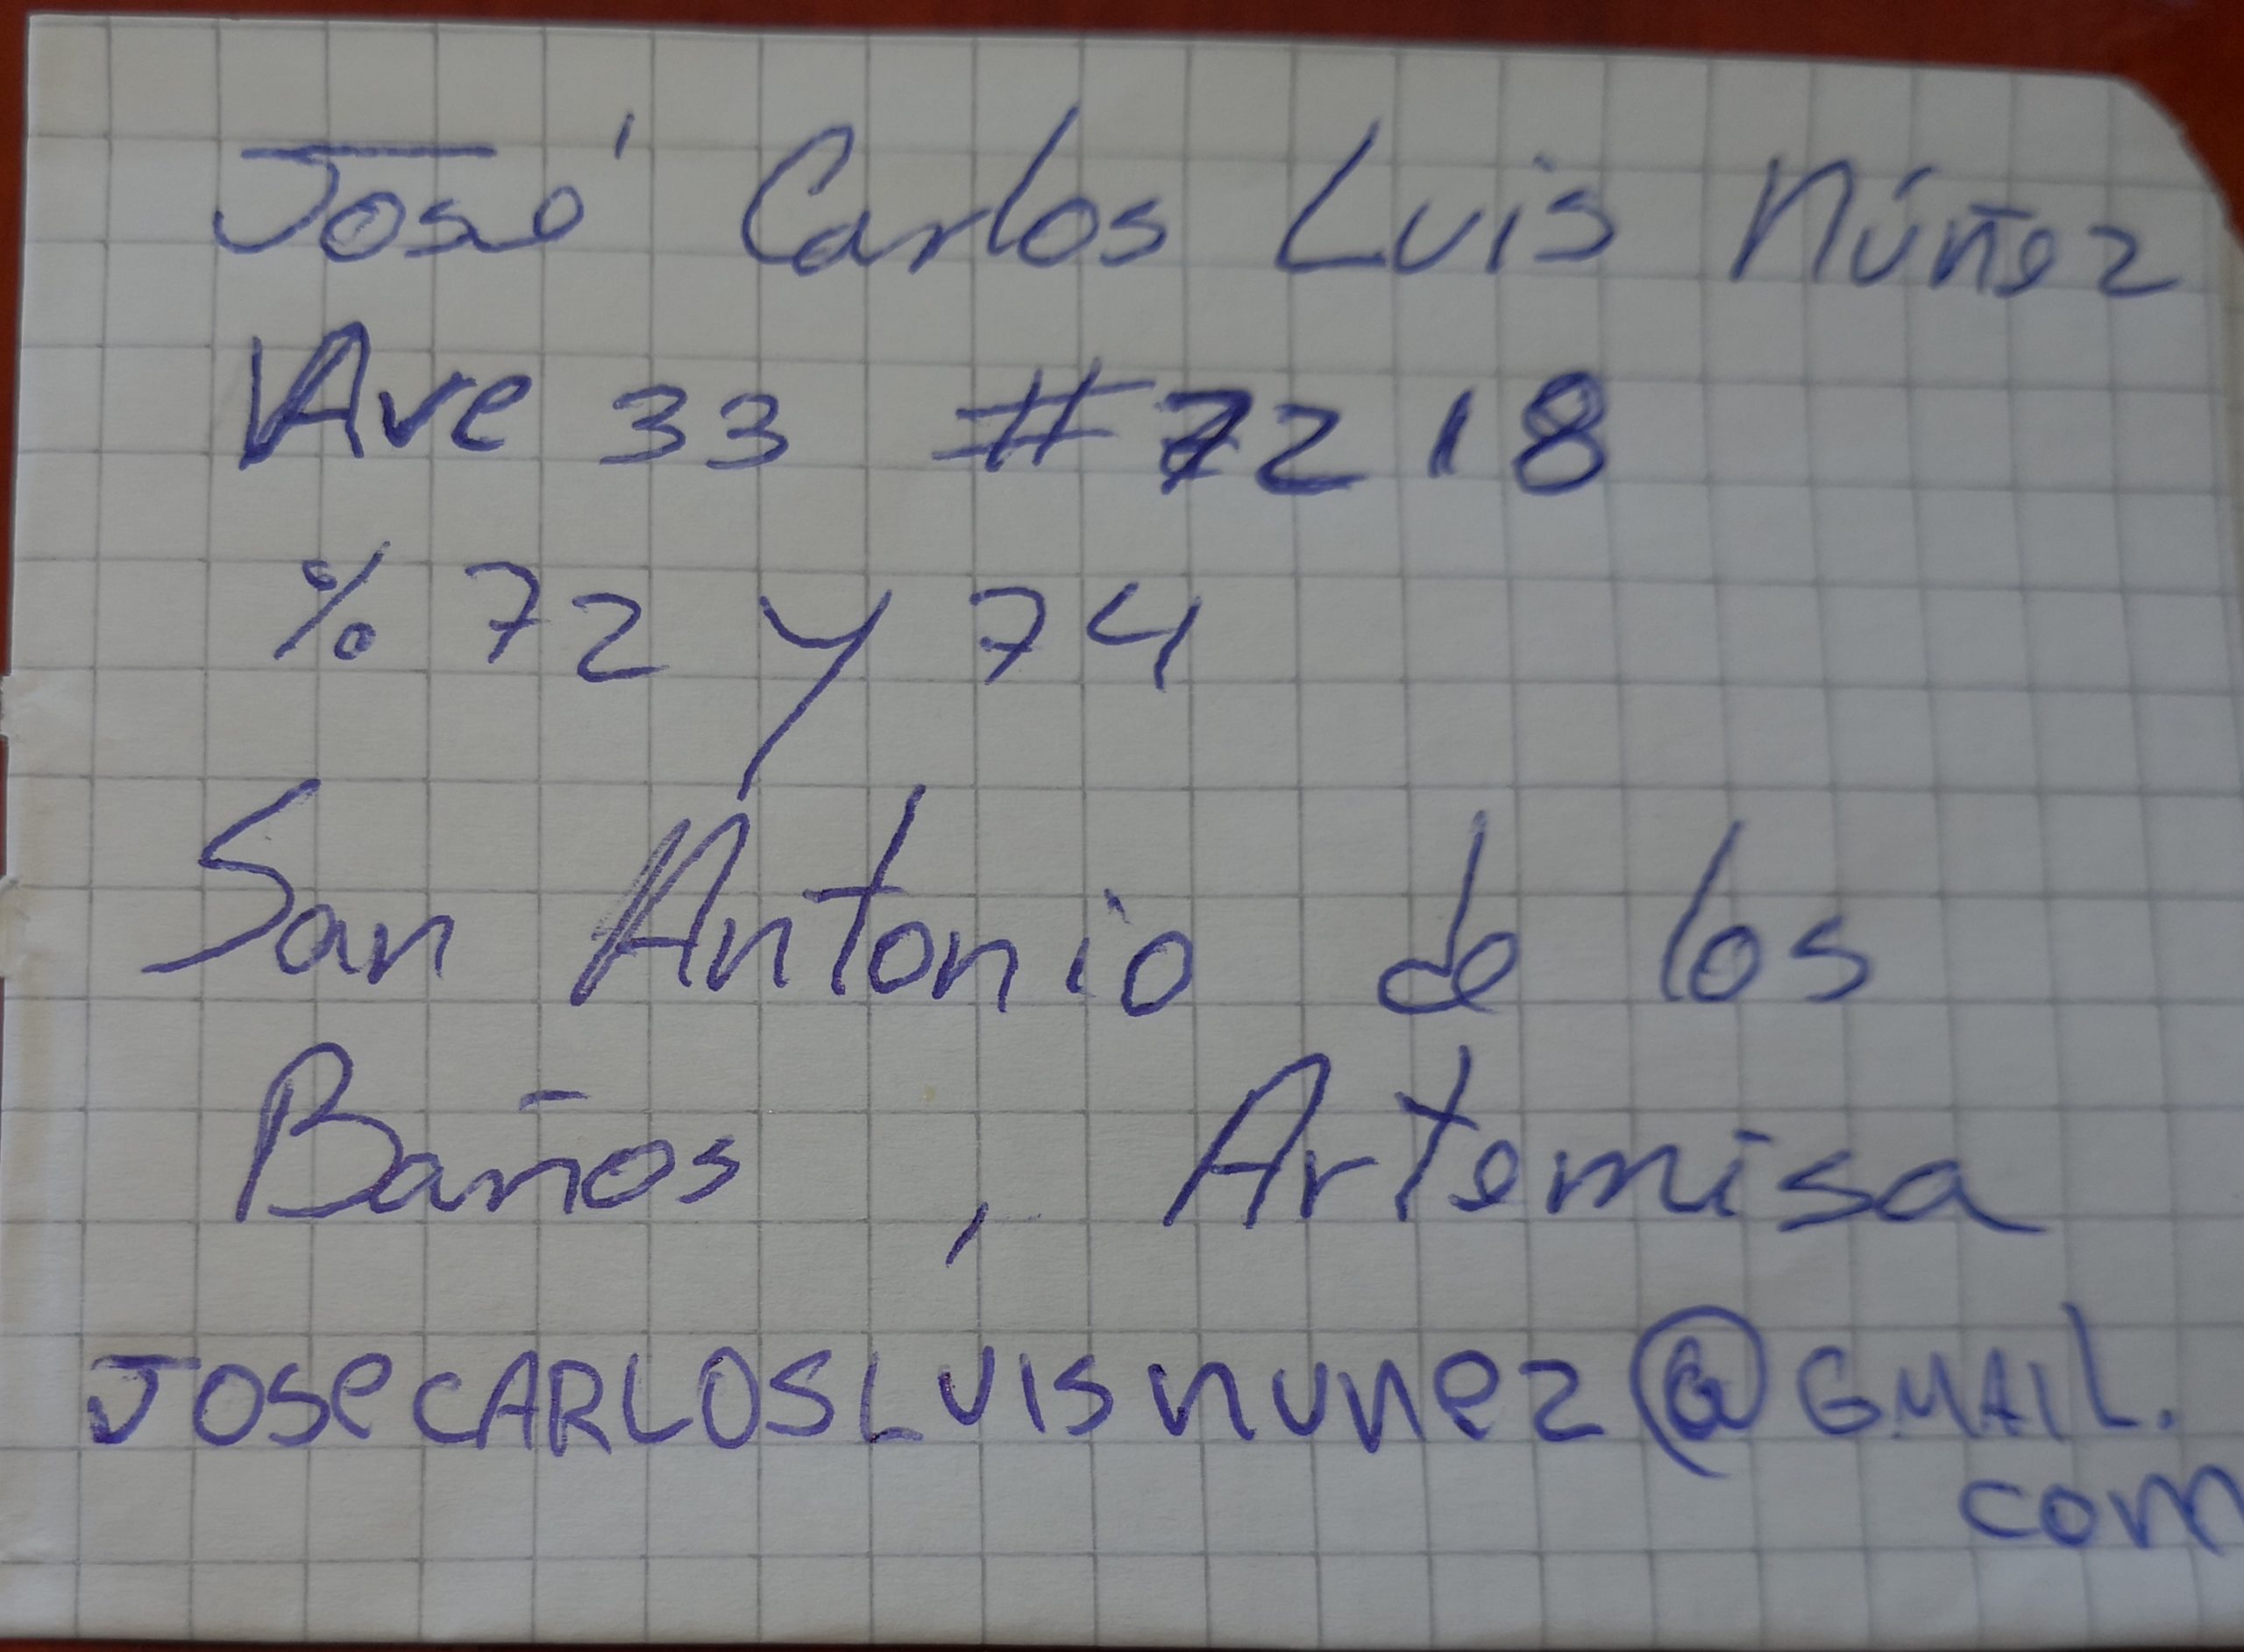 José Carlos Luis Núñez
Ave 33 #7218
% 72 y 74
San Antonio de los
Baños, Artemisa
JOSeCARLOSLUISnunez@GMAIL.
com